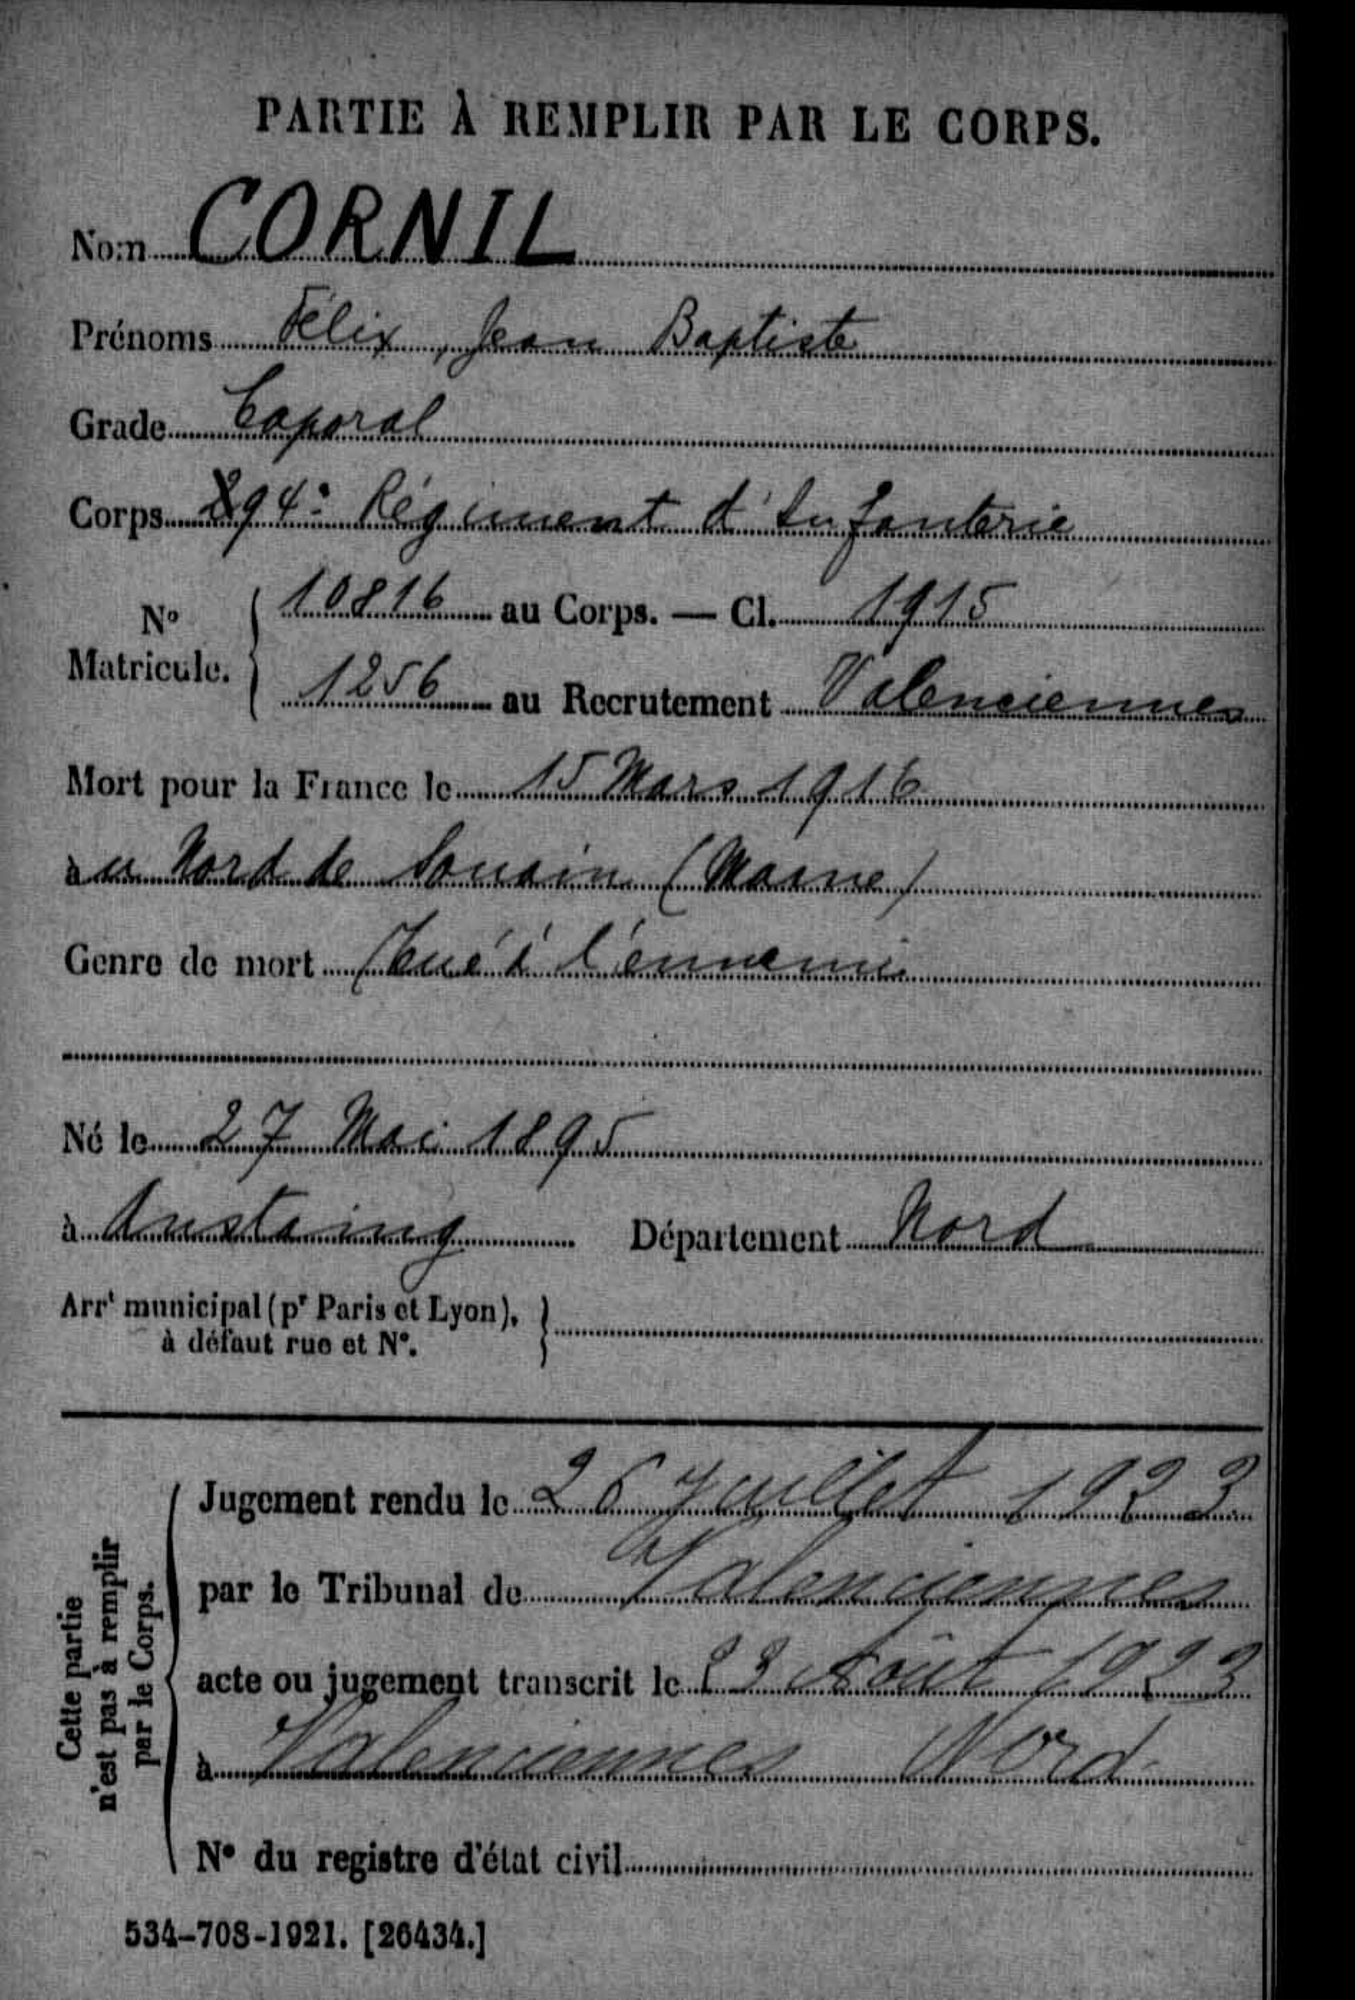 PARTIE À REMPLIR PAR LE CORPS.
Nom CORNIL
Prénoms Félix, Jean Baptiste
Grade Caporal
Corps 294e Régiment d'Infanterie
No Matricule. { 10816 au Corps. — Cl. 1915
1256 au Recrutement Valenciennes
Mort pour la France le 15 Mars 1916
au Nord de Souain (Marne)
Genre de mort Tué à l'ennemi
Né le 27 Mai 1895
à Anstaing Département Nord
Arrt municipal (pr Paris et Lyon), à défaut rue et No. }
Cette partie n'est pas à remplir par le Corps.
Jugement rendu le 26 Juillet 1923
par le Tribunal de Valenciennes
acte ou jugement transcrit le 23 Août 1923
à Valenciennes Nord
No du registre d'état civil
534-708-1921. [26434.]